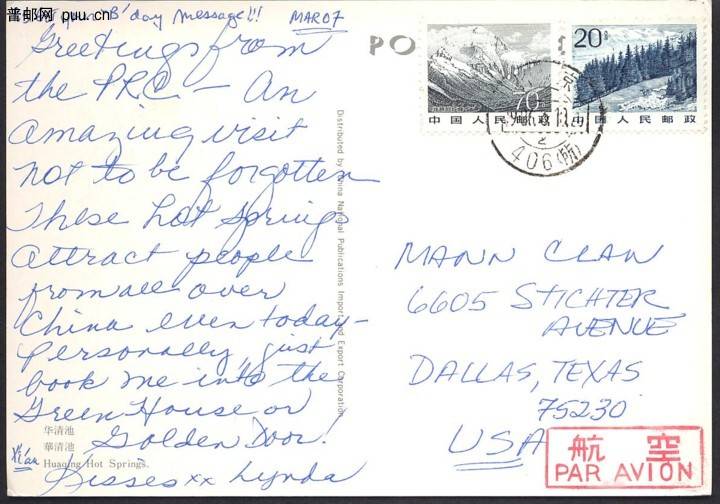 普邮网 puu.cn
'B' day message!!
MAR07
Greetings from
the PRC – An
amazing visit
not to be forgotten
These hot springs
attract people
from all over
China even today –
Personally, just
book me into the
Green House or
Golden Door!
Kisses xx Lynda
华清池
華清池
Xi'an
Huaqing Hot Springs.
Distributed by China National Publications Import and Export Corporation
PO
70
中国人民邮政
20分
中国人民邮政
2
406(所)
MANN CLAN
6605 STICHTER
AVENUE
DALLAS, TEXAS
75230
USA
航空
PAR AVION